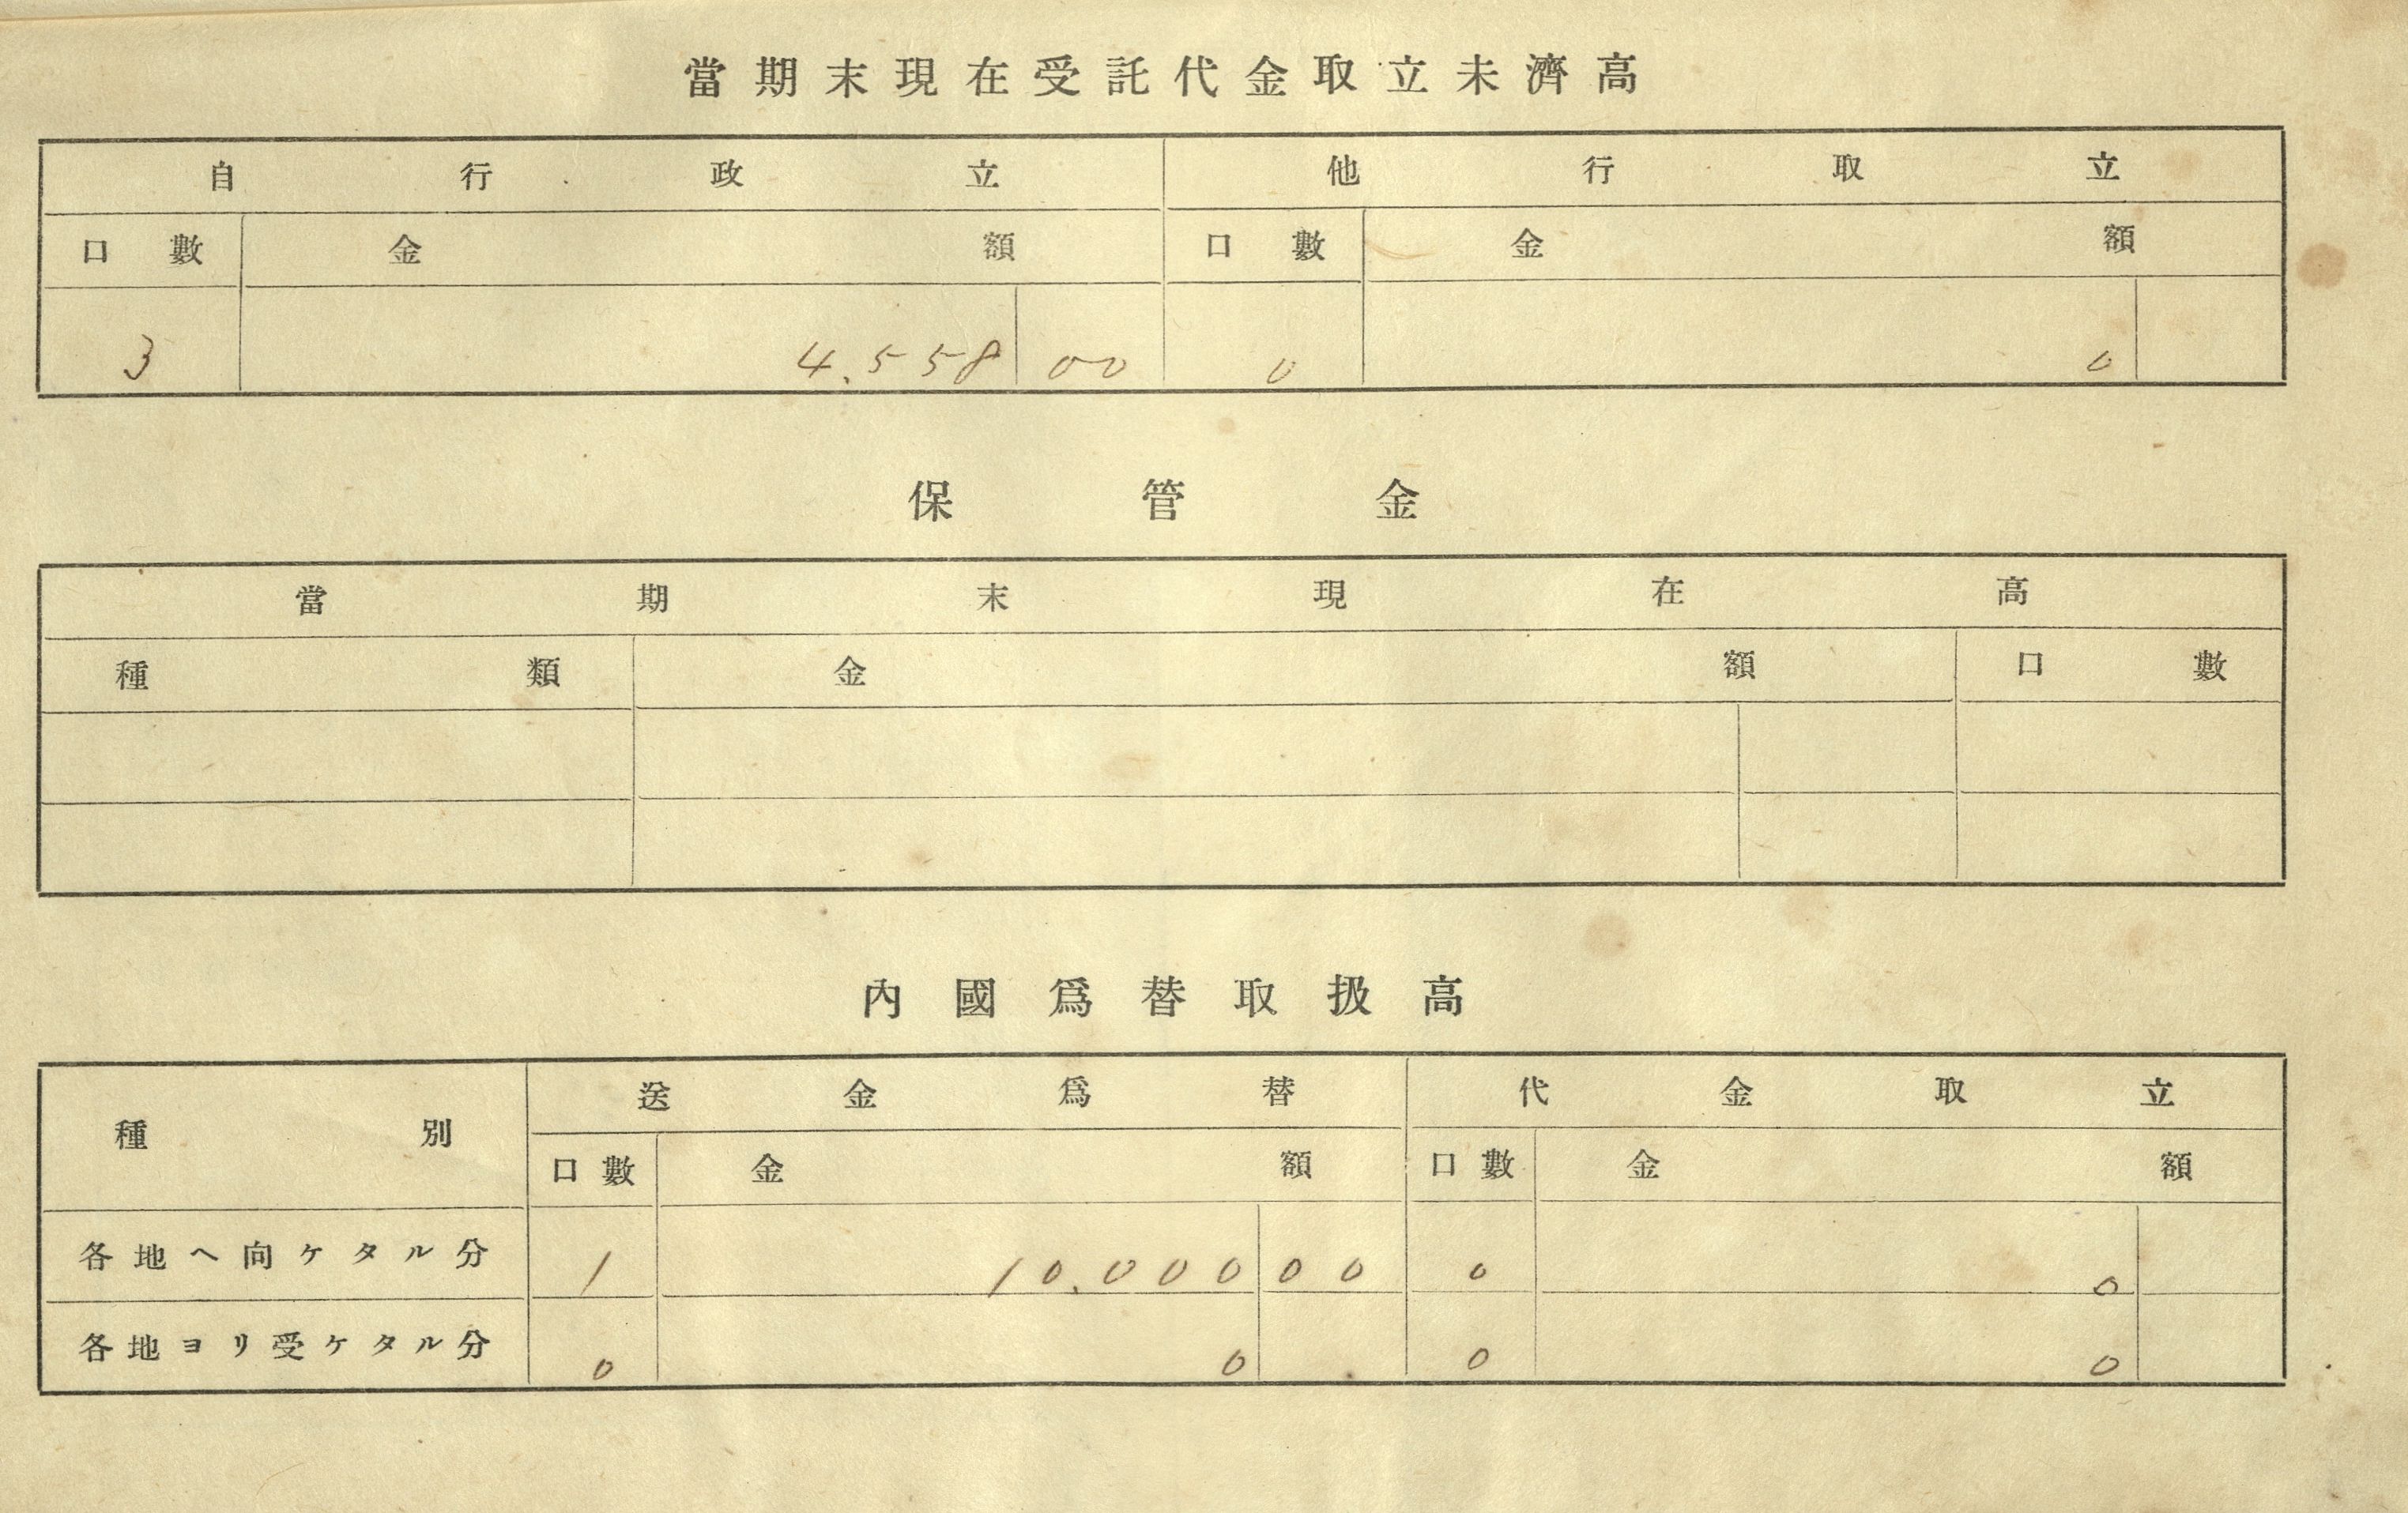 當期末現在受託代金取立未濟高
自行政立 他行取立
口數 金額 口數 金額
3 4.558 00 0 0
保管金
當期末現在高
種類 金額 口數
內國爲替取扱高
種別 送金爲替 代金取立
口數 金額 口數 金額
各地ヘ向ケタル分 1 10.000 00 0 0
各地ヨリ受ケタル分 0 0 0 0